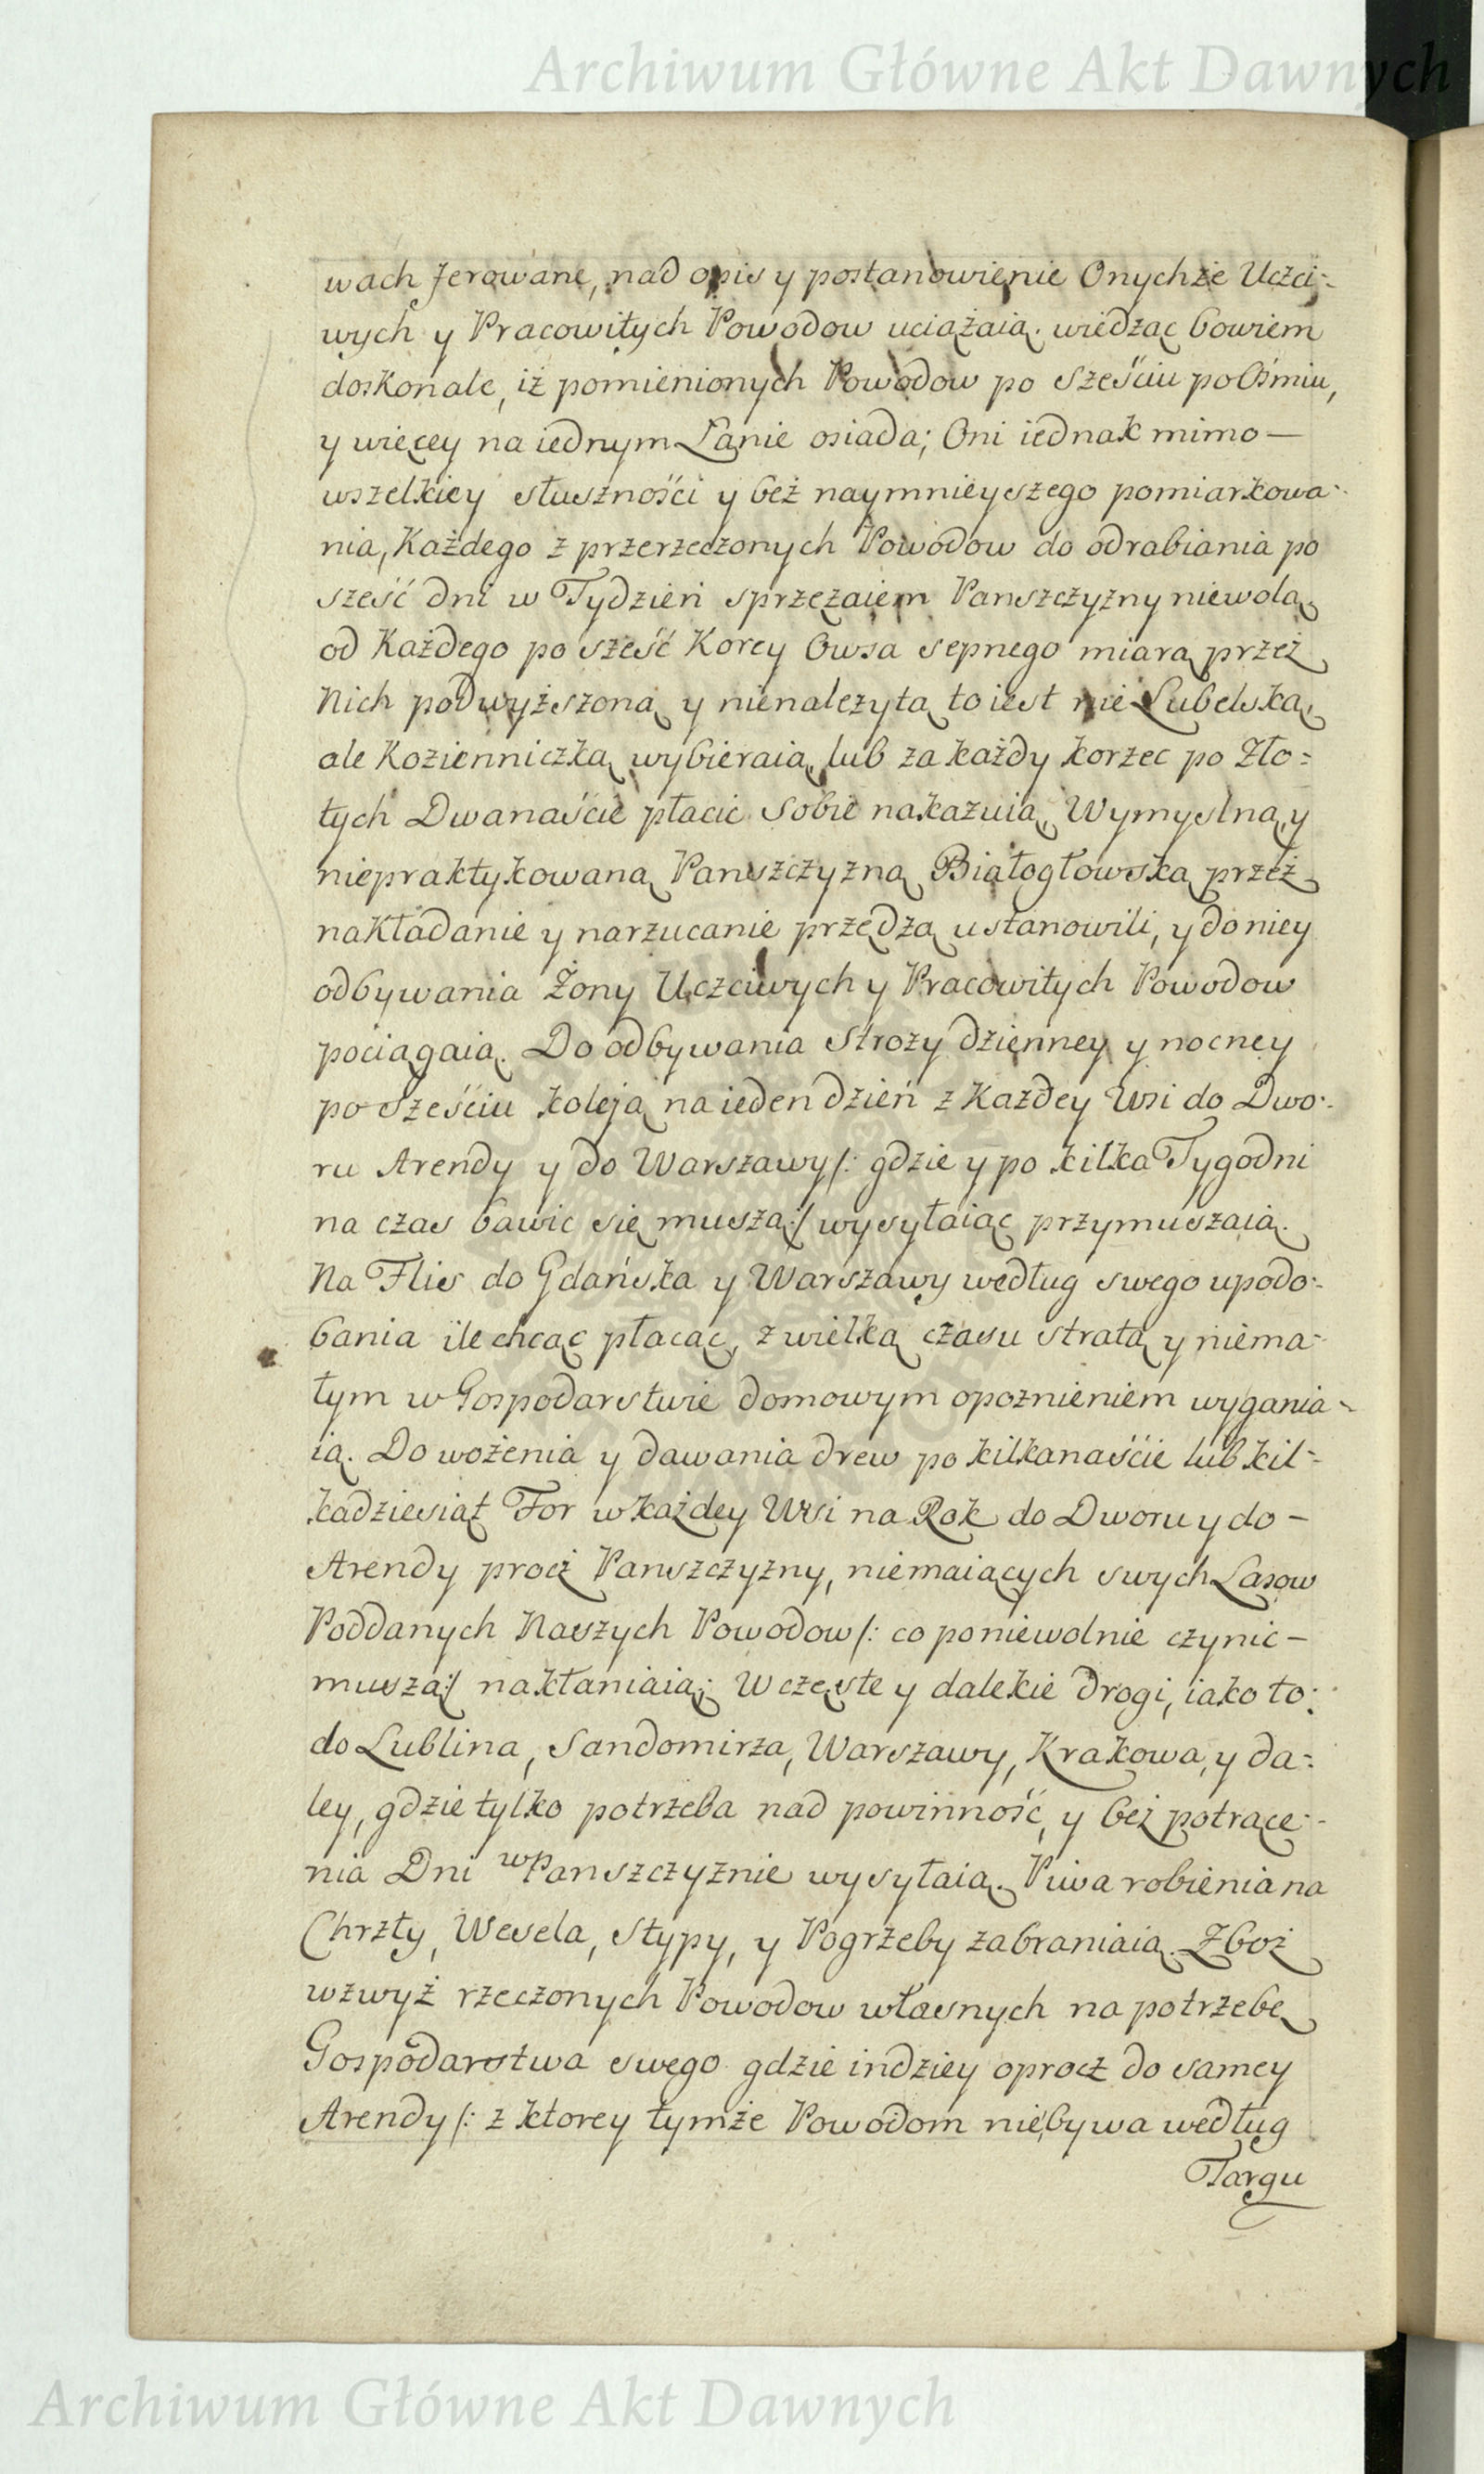 Archiwum Główne Akt Dawnych
wach ferowane, nad opis y postanowienie Onychże Uczci-
wych y Pracowitych Powodow uciążaią. wiedząc bowiem
doskonale, iż pomienionych Powodow po sześciu po Ośmiu,
y więcey na iednym Łanie osiada; Oni iednak mimo —
wszelkiey słuszności y beż naymnieyszego pomiarkowa-
nia, Każdego z przerzeczonych Powodow do odrabiania po
sześć dni w Tydzień sprzężaiem Panszczyzny niewolą,
od Każdego po sześć Korcy Owsa sepnego miarą przeż
Nich podwyższoną y nienależytą to iest nie Lubelską,
ale Kozienniczką wybieraią, lub za każdy korzec po Zło-
tych Dwanaście płacic sobie nakazuią, Wymyslną y
niepraktykowaną Panszczyzną Białogłowską przeż
nakładanie y narzucanie przędzą ustanowili, y do niey
odbywania Żony Uczciwych y Pracowitych Powodow
pociągaią. Do odbywania Stroży dzienney y nocney
po sześciu koleją na ieden dzień z Każdey Wsi do Dwo-
ru Arendy y do Warszawy /: gdzie y po kilka Tygodni
na czas bawic się muszą :/ wysyłaiąc przymuszaią.
Na Flis do Gdańska y Warszawy według swego upodo-
bania ile chcąc płacąc, z wielką czasu stratą y niema-
łym w Gospodarstwie domowym opoznieniem wygania-
ią. Do wożenia y dawania drew po kilkanaście lub kil-
kadziesiąt For w każdey Wsi na Rok do Dworu y do —
Arendy procż Panszczyzny, niemaiących swych Lasow
Poddanych Naszych Powodow /: co poniewolnie czynic —
muszą :/ nakłaniaią; W częste y dalekie drogi, iako to:
do Lublina, Sandomirza, Warszawy, Krakowa, y da-
ley, gdzie tylko potrzeba nad powinność, y beż potrące-
nia Dni w Panszczyznie wysyłaią. Piwa robienia na
Chrzty, Wesela, Stypy, y Pogrzeby zabraniaią. Zboż
wzwyż rzeczonych Powodow własnych na potrzebę
Gospodarstwa swego gdzie indziey oprocż do samey
Arendy /: z ktorey tymże Powodom niebywa według
Targu
Archiwum Główne Akt Dawnych